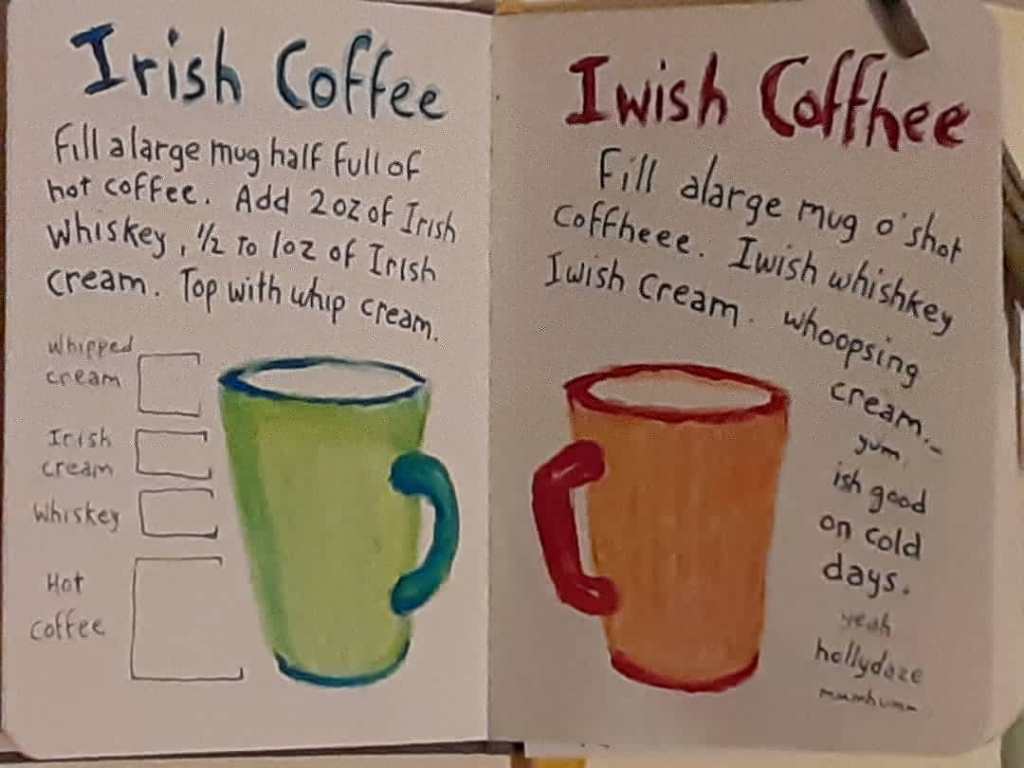 Irish Coffee
Fill a large mug half full of
hot coffee. Add 2oz of Irish
Whiskey, 1/2 to 1oz of Irish
cream. Top with whip cream.
Whipped
cream
Irish
cream
Whiskey
Hot
coffee
Iwish Coffhee
Fill alarge mug o'shot
Coffheee. Iwish whishkey
Iwish Cream. whoopsing
cream._
yum.
ish good
on cold
days.
yeah
hollydaze